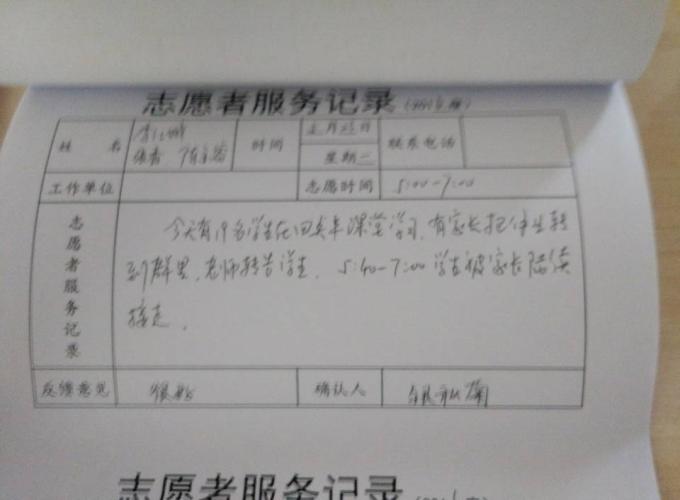 志愿者服务记录
姓 名 时间 月 日 联系电话
星期二
工作单位 志愿时间 5:00-7:00
志愿者服务记录
今天有19名学生在四点半课堂学习,有家长把作业转
到群里,老师转告学生。5:40-7:00学生被家长陆续
接走。
反馈意见 很好 确认人 银秋菊
志愿者服务记录